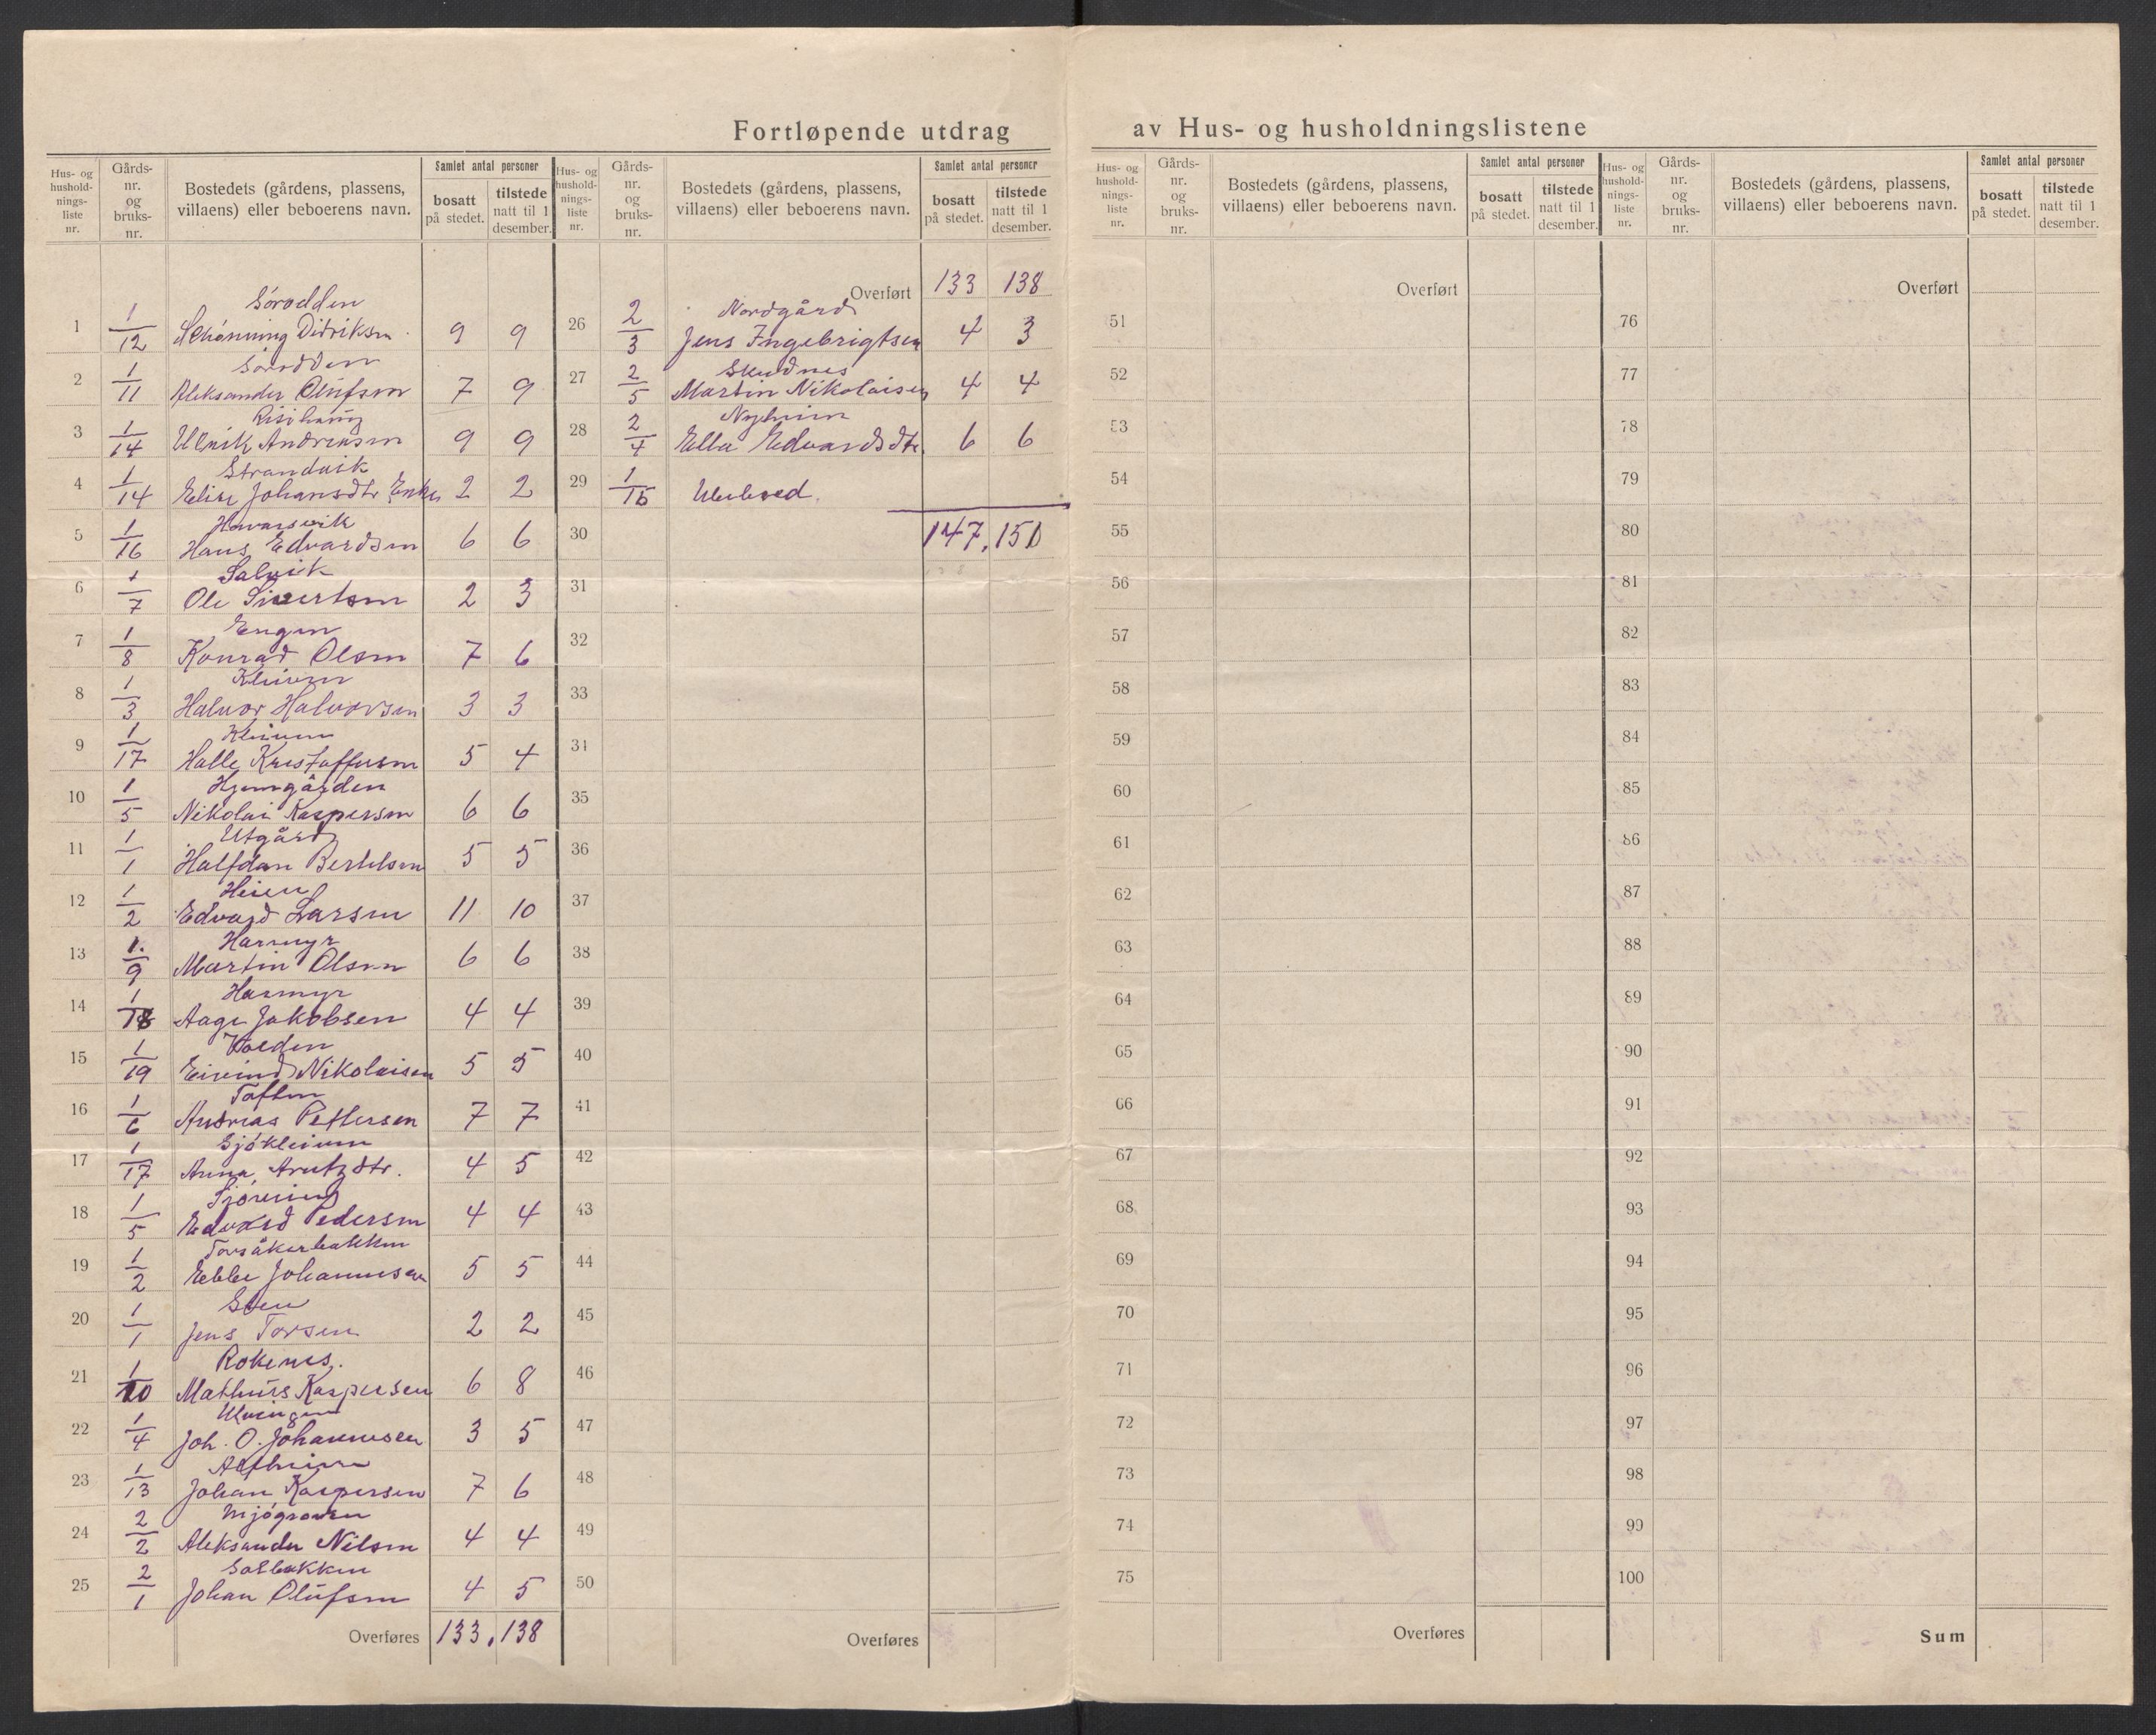 Fortløpende utdrag av Hus- og husholdningslistene
Hus- og hushold-nings-liste nr. | Gårds-nr. og bruks-nr. | Bostedets (gårdens, plassens, villaens) eller beboerens navn. | Samlet antal personer | bosatt på stedet. | tilstede natt til 1 desember.
Hus- og hushold-nings-liste nr. | Gårds-nr. og bruks-nr. | Bostedets (gårdens, plassens, villaens) eller beboerens navn. | Samlet antal personer | bosatt på stedet. | tilstede natt til 1 desember.
Hus- og hushold-nings-liste nr. | Gårds-nr. og bruks-nr. | Bostedets (gårdens, plassens, villaens) eller beboerens navn. | Samlet antal personer | bosatt på stedet. | tilstede natt til 1 desember.
Hus- og hushold-nings-liste nr. | Gårds-nr. og bruks-nr. | Bostedets (gårdens, plassens, villaens) eller beboerens navn. | Samlet antal personer | bosatt på stedet. | tilstede natt til 1 desember.
Sørodden
1 1/12 Schønning Didriksen 9 9
Sørodden
2 1/11 Aleksander Olufsen 7 9
3 1/14 Ulrik Andreasen 9 9
Strandvik
4 1/14 Elise Johansdtr Enke 2 2
Havarsvik
5 1/16 Hans Edvardsen 6 6
Salvik
6 1/7 Ole Sivertsen 2 3
Engen
7 1/8 Konrad Olsen 7 6
Kleiven
8 1/3 Halvor Halvorsen 3 3
Kleiven
9 1/17 Halle Kristoffersen 5 4
Hjemgården
10 1/5 Nikolai Kaspersen 6 6
Utgård
11 1/1 Halfdan Bertelsen 5 5
Heien
12 1/2 Edvard Larsen 11 10
Harmyr
13 1/9 Martin Olsen 6 6
Harmyr
14 1/18 Aage Jakobsen 4 4
Volden
15 1/19 Eivind Nikolaisen 5 5
Toften
16 1/6 Andreas Pettersen 7 7
Sjökleiven
17 1/17 Anna Arntzdtr. 4 5
18 1/5 Edvard Pedersen 4 4
Torsåkerbakken
19 1/2 Ebbe Johannesen 5 5
Sten
20 1/1 Jens Torsen 2 2
Rokenes.
21 1/10 Mathias Kaspersen 6 8
Kvingen
22 1/4 Joh. O. Johannesen 3 5
23 1/13 Johan Kaspersen 7 6
Mjögraven
24 2/2 Aleksander Nilsen 4 4
Solbakken
25 2/1 Johan Olufsen 4 5
Overføres 133, 138
Overført 133 138
Nordgård
26 2/3 Jens Ingebrigtsen 4 3
Skudnes
27 2/5 Martin Nikolaisen 4 4
Nyheim
28 2/4 Ella Edvardsdtr. 6 6
29 1/15 Ubeboed.
30 147, 151
31
32
33
34
35
36
37
38
39
40
41
42
43
44
45
46
47
48
49
50
Overføres
Overført
51
52
53
54
55
56
57
58
59
60
61
62
63
64
65
66
67
68
69
70
71
72
73
74
75
Overføres
Overført
76
77
78
79
80
81
82
83
84
85
86
87
88
89
90
91
92
93
94
95
96
97
98
99
100
Sum